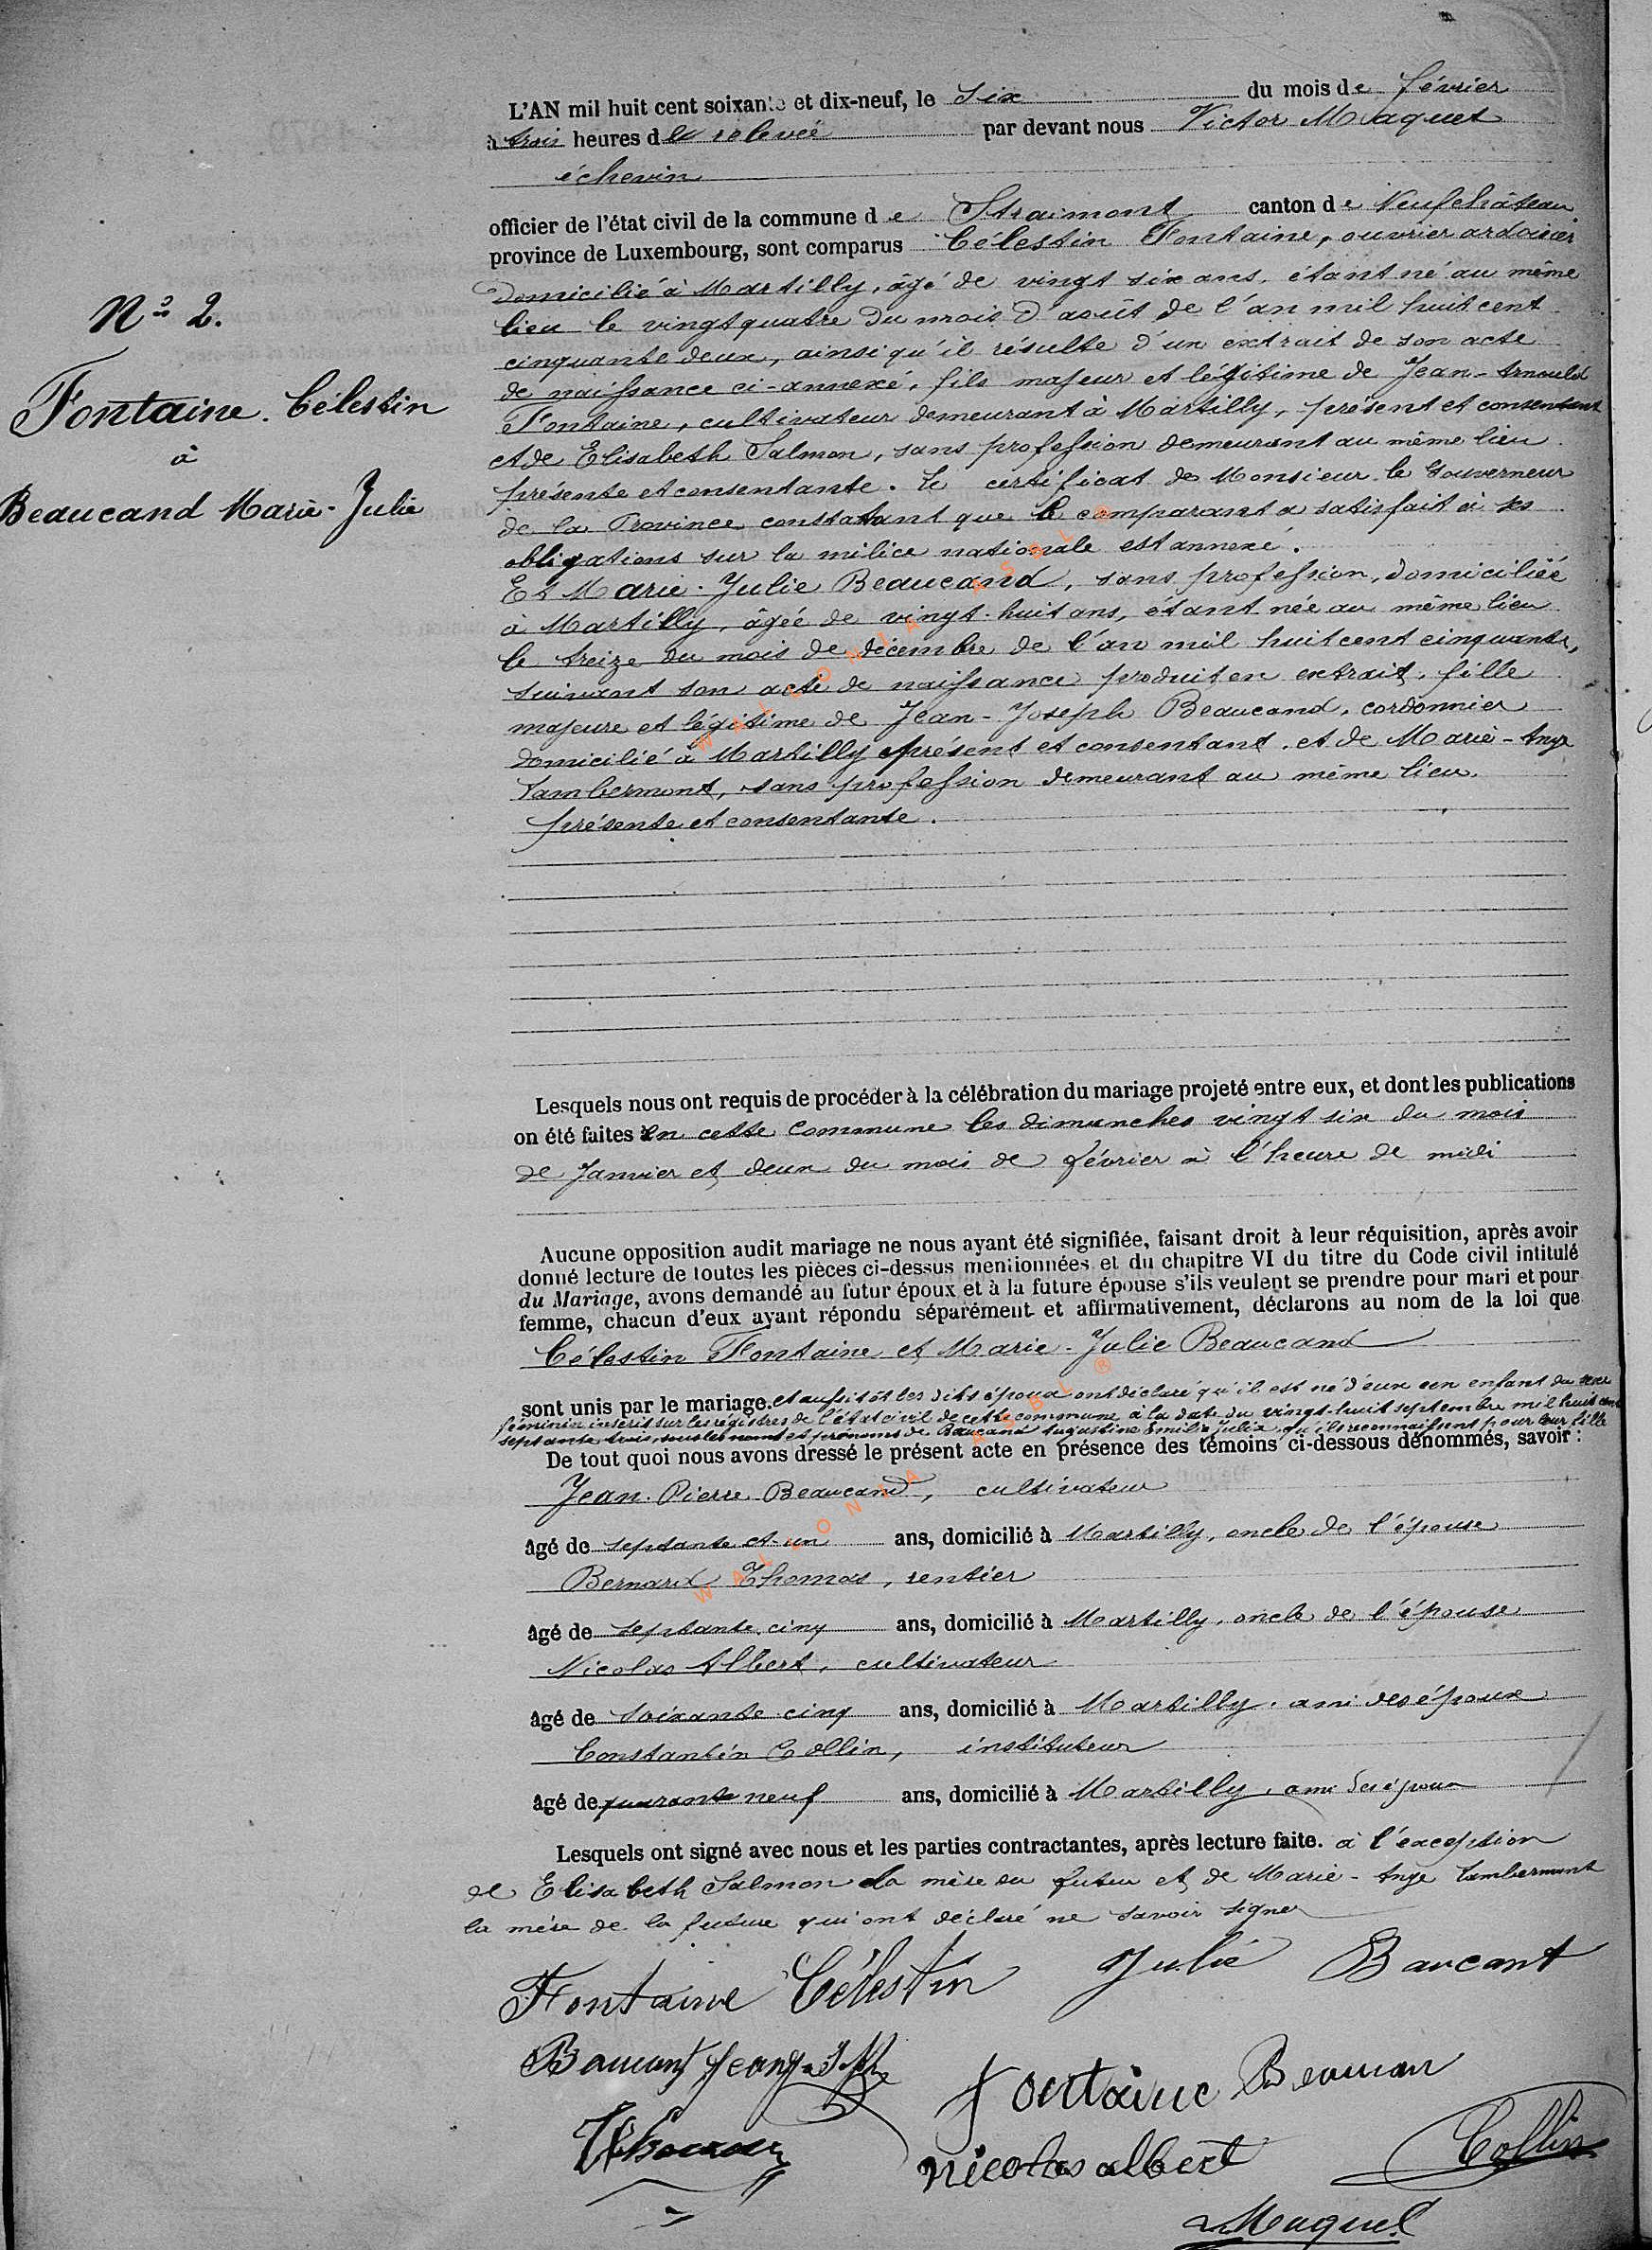 L'AN mil huit cent soixante et dix-neuf, le six du mois de février
à trois heures de relevée par devant nous Victor Maquet
échevin
officier de l'état civil de la commune de Straimont canton de Neufchâteau
province de Luxembourg, sont comparus Célestin Fontaine, ouvrier ardoisier
domicilié à Martilly, âgé de vingt six ans, étant né au même
lieu le vingt quatre du mois d'août de l'an mil huit cent
cinquante deux, ainsi qu'il résulte d'un extrait de son acte
de naissance ci-annexé, fils majeur et légitime de Jean-Arnould
N° 2.
Fontaine, cultivateur demeurant à Martilly, présent et consentant
Fontaine. Célestin
et de Elisabeth Salmon, sans profession demeurant au même lieu
à
présente et consentante. Le certificat de Monsieur le Gouverneur
Beaucand Marie-Julie
de la Province constatant que le comparant a satisfait à ses
obligations sur la milice nationale est annexé.
Et Marie-Julie Beaucand, sans profession, domiciliée
à Martilly, âgée de vingt-huit ans, étant née au même lieu
le treize du mois de décembre de l'an mil huit cent cinquante,
suivant son acte de naissance produit en extrait, fille
majeure et légitime de Jean-Joseph Beaucand, cordonnier
domicilié à Martilly présent et consentant, et de Marie-Ange
Lambermont, sans profession demeurant au même lieu
présente et consentante.
Lesquels nous ont requis de procéder à la célébration du mariage projeté entre eux, et dont les publications
on été faites en cette commune les dimanches vingt six du mois
de Janvier et deux du mois de février à l'heure de midi
Aucune opposition audit mariage ne nous ayant été signifiée, faisant droit à leur réquisition, après avoir
donné lecture de toutes les pièces ci-dessus mentionnées et du chapitre VI du titre du Code civil intitulé
du Mariage, avons demandé au futur époux et à la future épouse s'ils veulent se prendre pour mari et pour
femme, chacun d'eux ayant répondu séparément et affirmativement, déclarons au nom de la loi que
Célestin Fontaine et Marie-Julie Beaucand
sont unis par le mariage. et aussitôt les dits époux ont déclaré qu'il est né d'eux un enfant du sexe
féminin inscrit sur les régistres de l'état civil de cette commune à la date du vingt-huit septembre mil huit cent
septante trois, sous les noms et prénoms de Baucand Augustine Emilie Julia, qu'ils reconnaissent pour leur fille
De tout quoi nous avons dressé le présent acte en présence des témoins ci-dessous dénommés, savoir :
Jean-Pierre Beaucand, cultivateur
âgé de septante et un ans, domicilié à Martilly, oncle de l'épouse
Bernard Thomas, rentier
âgé de septante cinq ans, domicilié à Martilly, oncle de l'épouse
Nicolas Albert, cultivateur
âgé de soixante cinq ans, domicilié à Martilly, ami des époux
Constantin Collin, instituteur
âgé de quarante neuf ans, domicilié à Martilly, ami des époux
Lesquels ont signé avec nous et les parties contractantes, après lecture faite. à l'exception
de Elisabeth Salmon la mère du futur et de Marie-Ange Lambermont
la mère de la future qui ont déclaré ne savoir signer
Fontaine Célestin Julie Baucant
Fontaine
nicolas albert Collin
Maquet
WALLONIA ASBL ®
WALLONIA ASBL ®